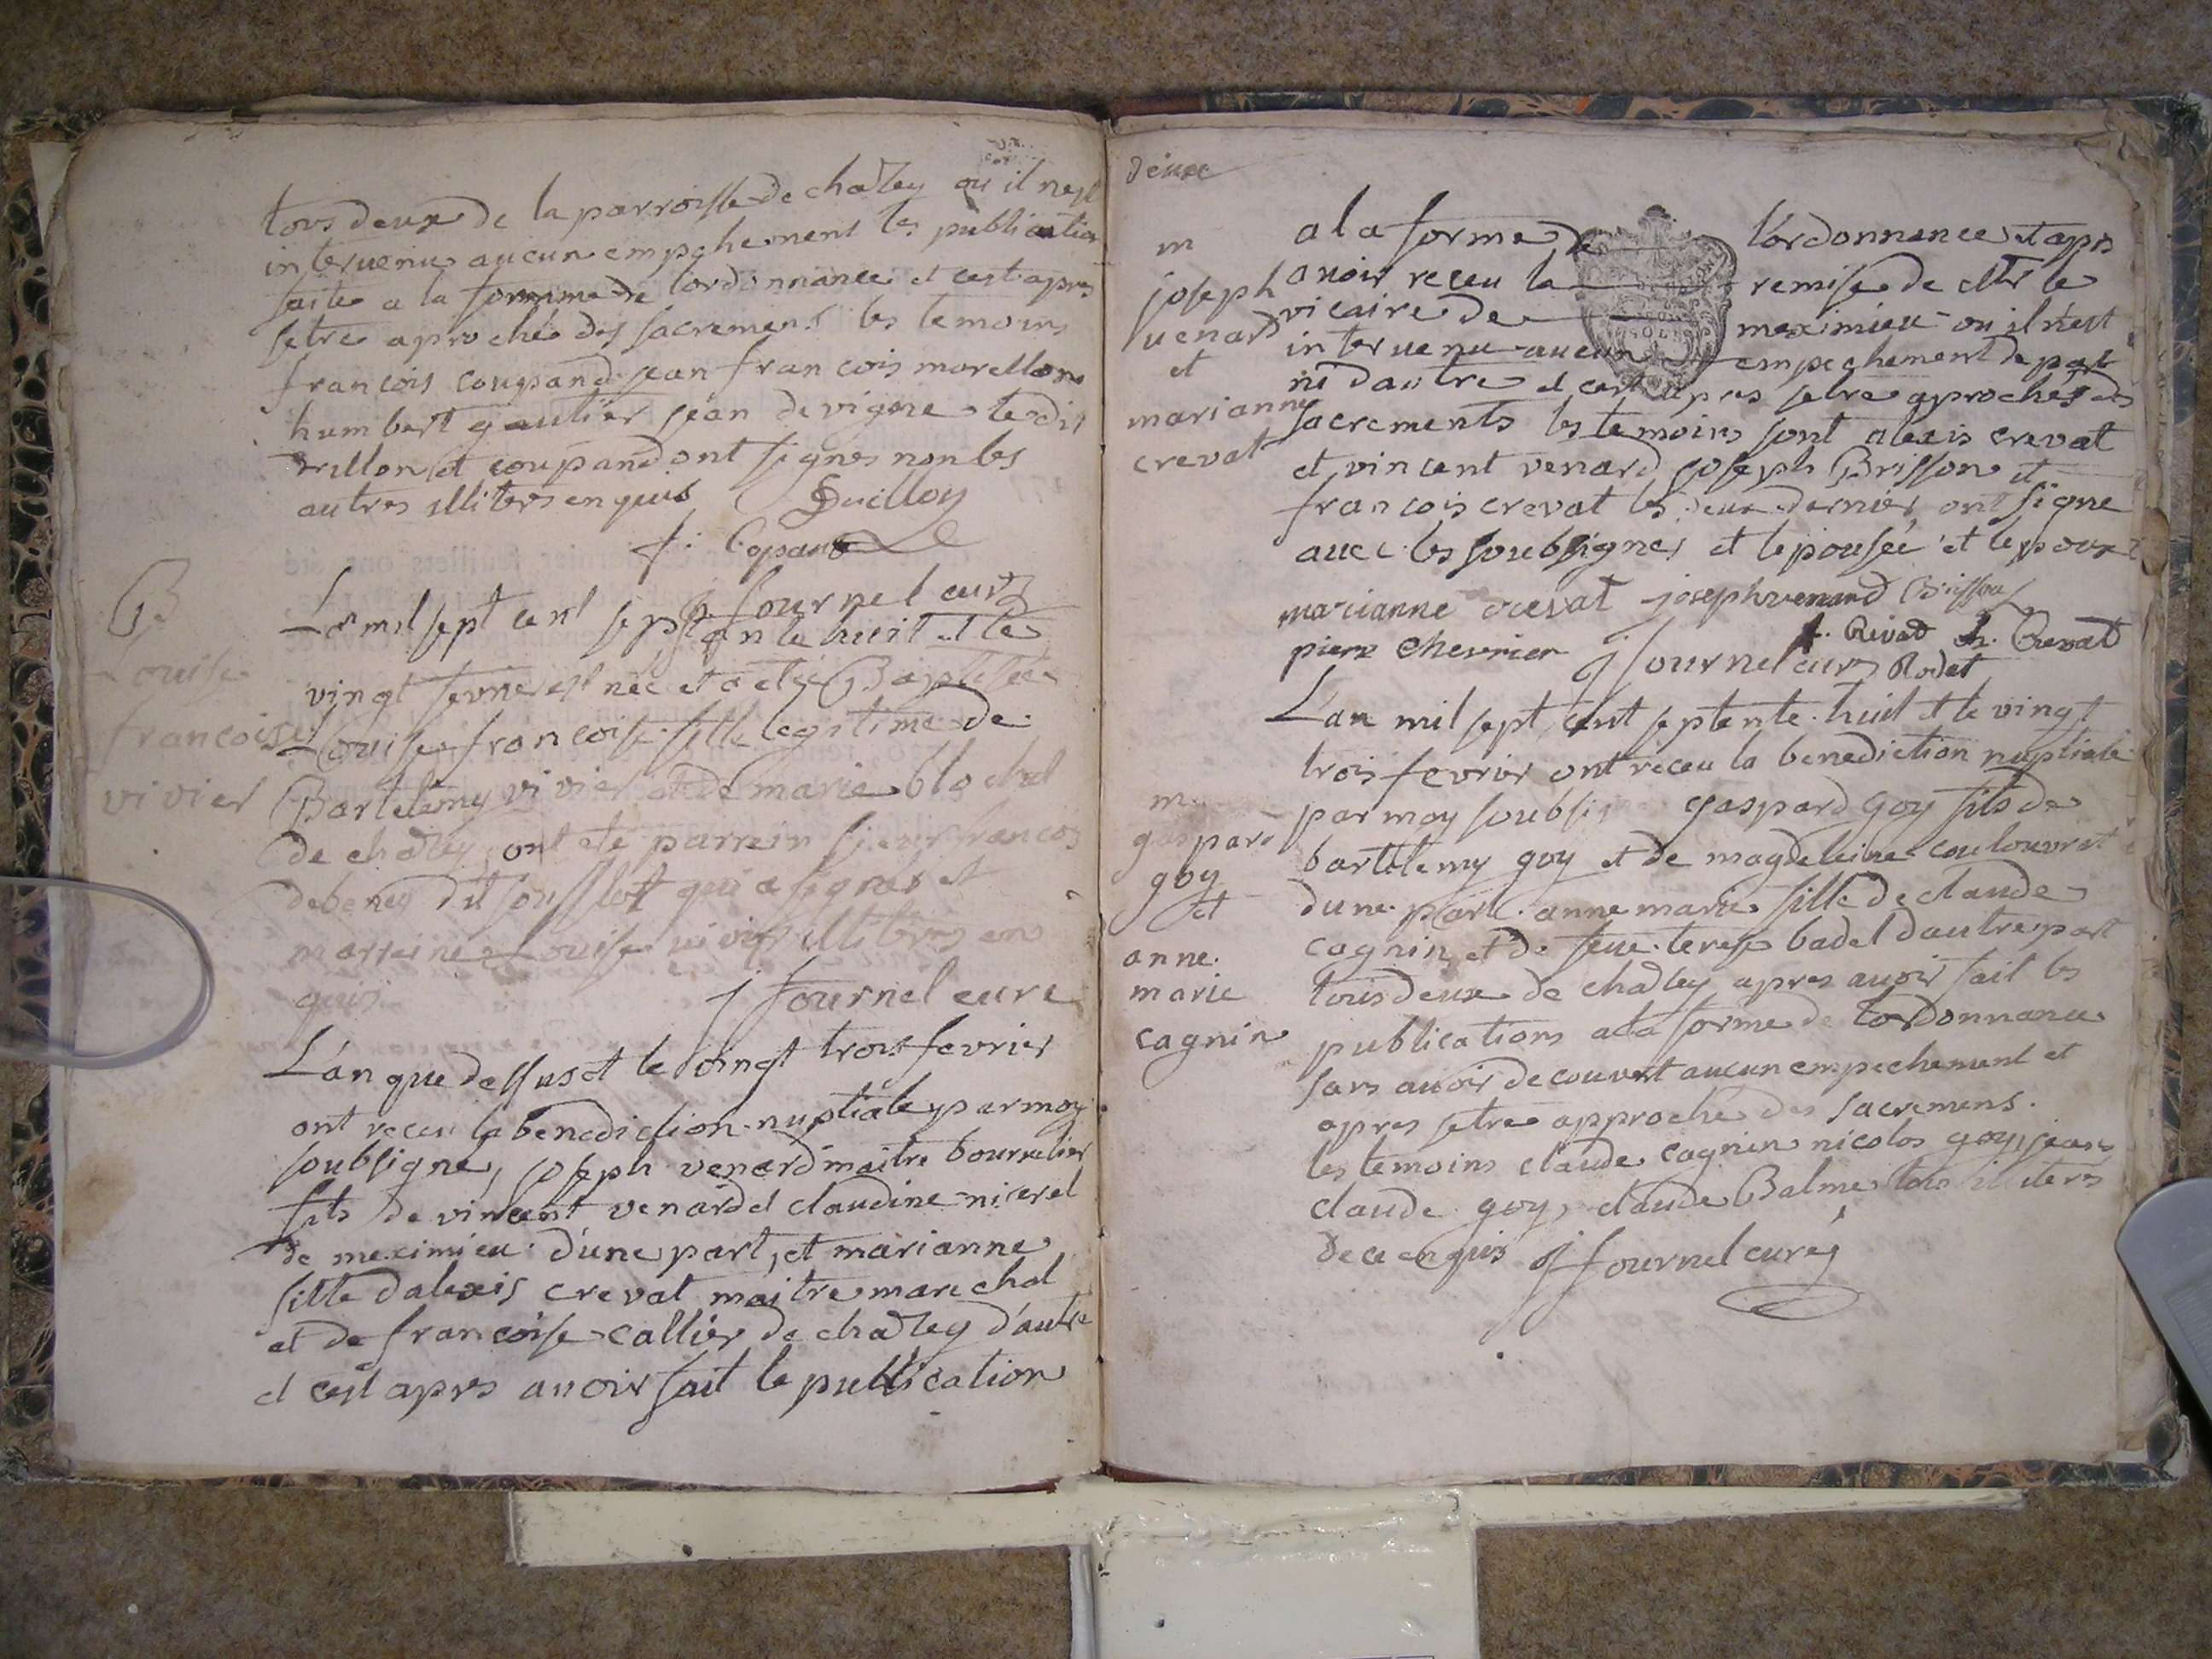 tous deux de la parroisse de chatey ou il nest
intervenu aucun empchement les publication
faite a la formme de lordonnance et cest apres
setre aproché des sacremens les temoins
francois coupand jean francois morellon
humbert gautier jean devigne lesdis
et coupand ont signes non les
autres illiters enquis
f: Copand
j fournel curé
B
Louise
francoise
vivier
Lan mil sept cent septante huit et le
vingt fevrier est née et a eté Baptisée
Louise francoise fille legitime de
Bartelemy vivier et de marie blochel
de chatey, ont ete parrein sieur francois
debeney dit soufflot qui a signés et
marreine Louise vivier illiters en
quis
j fournel cure
L'an que dessus et le vingt trois fevrier
ont receu la benediction nuptiale par moy
soubsigné, joseph venard maitre bourrelier
fils de vincent venard et claudine nicerel
de meximieu d'une part, et marianne
fille dalexis crevat maitre marechal
et de francoise callier de chatey d'autre
et cest apres avoir fait le publication
deuxe
m
joseph
venard
et
marianne
crevat
a la forme de l'ordonnance et apres
avoir receu la remise de Mr le
vicaire de meximieu ou il n'est
intervenu aucun empechement de part
ni dautre et cest apres setre aprochés des
sacrements les temoins sont alexis crevat
et vincent venard joseph Brisson et
francois crevat les deux dernier ont signe
avec les soubsignes et lepousée et lepoux
marianne crevat joseph venard Brisson
pierre chevrier f. Crevat
j fournel curé Rodet
m
gaspard
goy
et
anne
marie
cagnin
L'an mil sept cent septente huit et le vingt
trois fevrier ont receu la benediction nuptiale
par moy soubsi gaspard goy fils de
bartelemy goy et de magdeleine coulouvrat
dune part anne marie fille de claude
cagnin et de feue terese badel dautre part
tous deux de chatey apres avoir fait les
publications a la forme de lordonnance
sans avoir decouvert aucun empechement et
apres setre approché des sacremens.
les temoins claude cagnin nicolas goy, jean
claude goy, claude Balme tous illiters
de ce enquis j fournel curé